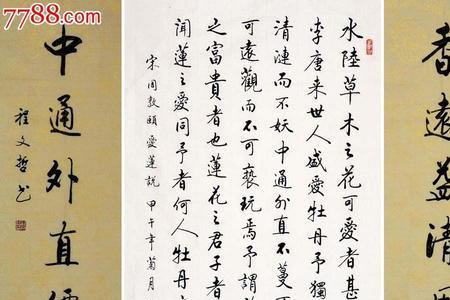 香遠益清
水陸草木之花可愛者甚
李唐来世人盛爱牡丹予獨
清漣而不妖中通外直不蔓
可遠觀而不可褻玩焉予謂
之富貴者也蓮花之君子者
聞蓮之爱同予者何人牡丹
宋周敦頤爱蓮説 甲午年菊月
中通外直
程文哲书
7788.com